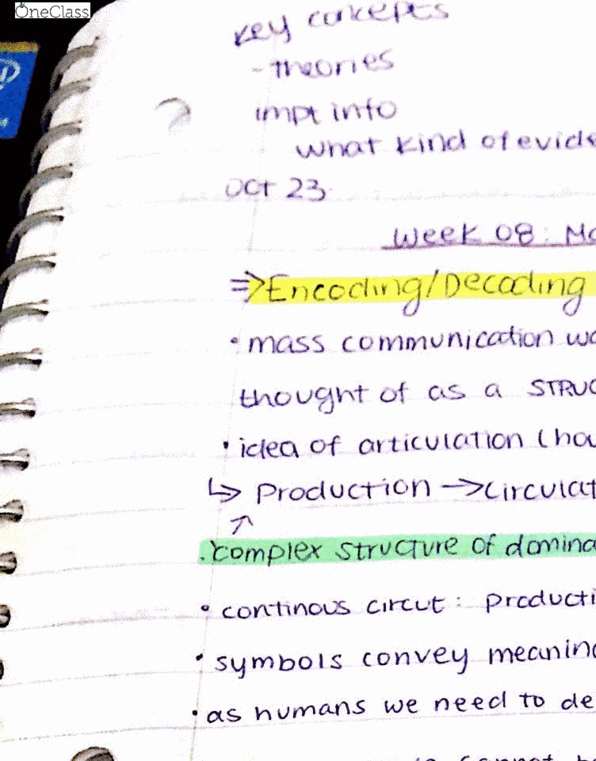 OneClass
key concepts
- theories
impt info
what kind of evide
Oct 23
Week 08: Ma
⇒ Encoding/Decoding
• mass communication wa
thought of as a STRUC
• idea of articulation (how
↳ Production → circulat
↑
• complex structure of domina
• continous circut: producti
• symbols convey meaning
• as humans we need to de